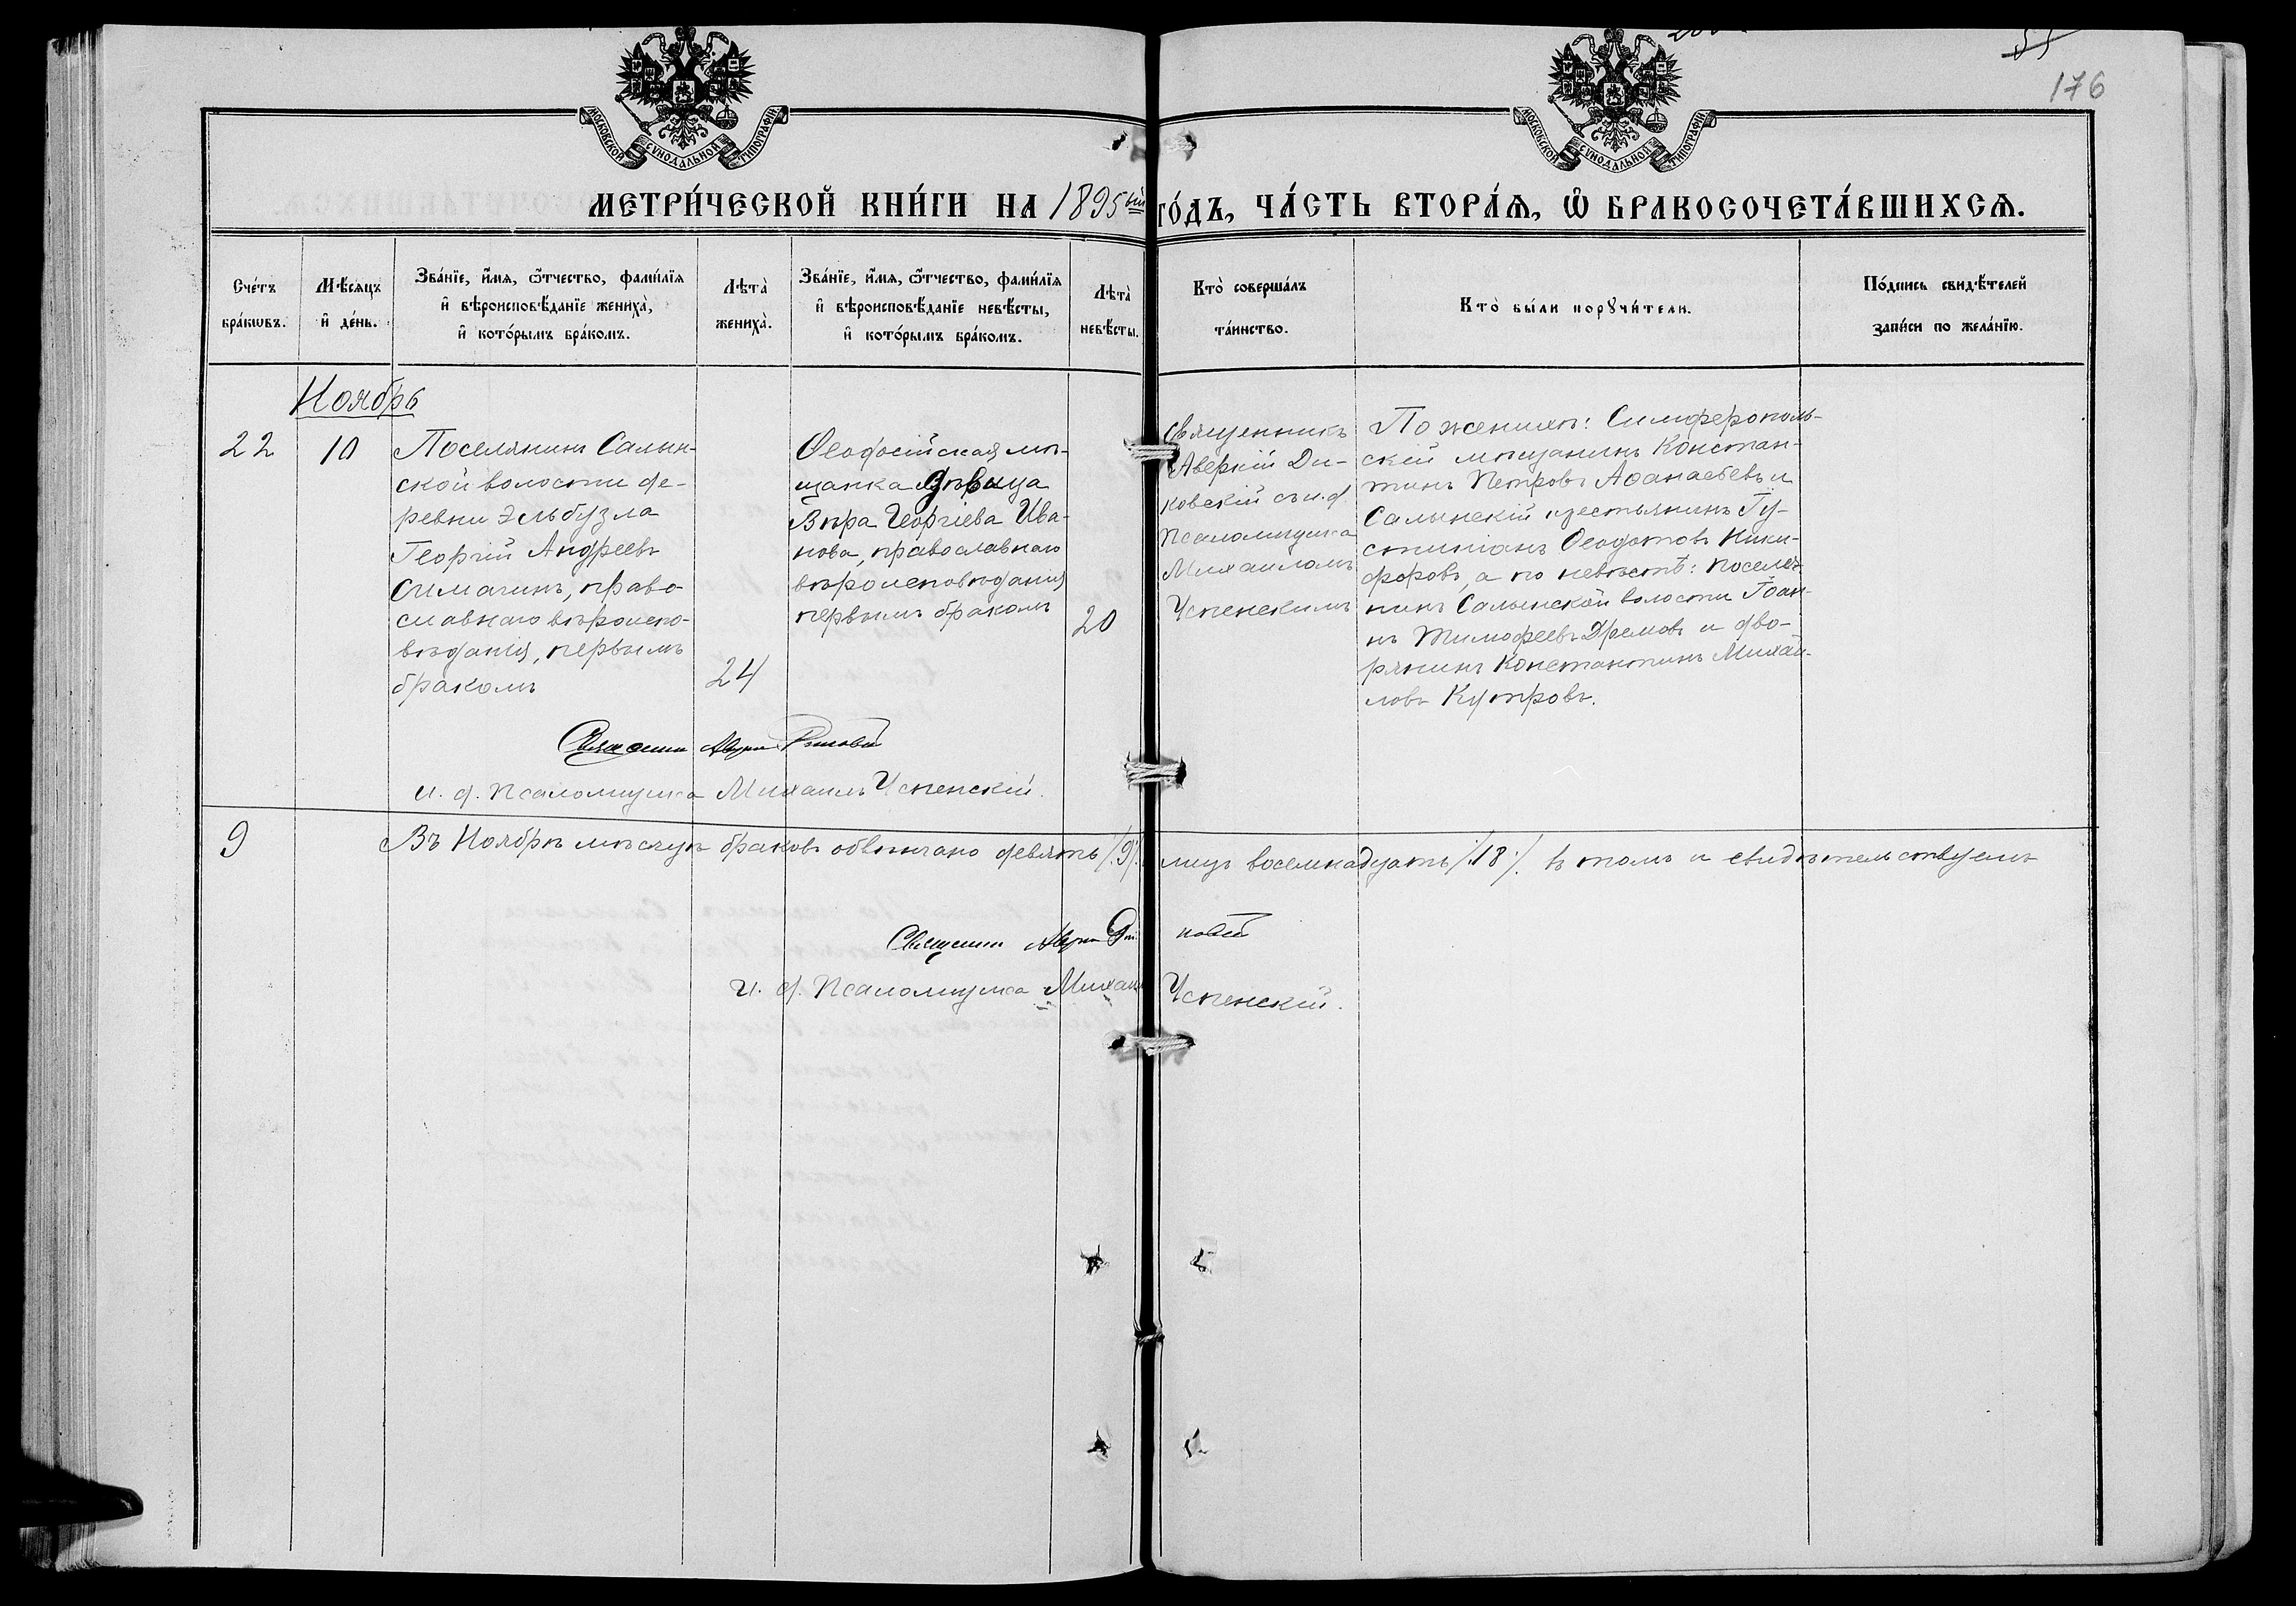 176
МОСКОВСКОЙ СѴНОДАЛЬНОЙ ТИПОГРАФІИ
МОСКОВСКОЙ СѴНОДАЛЬНОЙ ТИПОГРАФІИ
МЕТРИ́ЧЕСКОЙ КНИ́ГИ НА 1895ый ГО́ДЪ, ЧА́СТЬ ВТОРА́Ѧ, Ѽ БРАКОСОЧЕТА́ВШИХСѦ.
Сче́тъ
бра́кѡвъ.
Мѣ́сѧцъ
и҆ де́нь.
Зва́нїе, и҆́мѧ, ѻ҆́тчество, фами́лїѧ
и҆ вѣроисповѣ́данїе жениха̀,
и҆ кото́рымъ бра́комъ.
Лѣта̀
жениха̀.
Зва́нїе, и҆́мѧ, ѻ҆́тчество, фами́лїѧ
и҆ вѣроисповѣ́данїе невѣ́сты,
и҆ кото́рымъ бра́комъ.
Лѣта̀
невѣ́сты.
Кто̀ соверша́лъ
та́инство.
Кто̀ бы́ли порꙋчи́тели.
По́дпись свидѣ́телей
за́писи по жела́нїю.
Ноябрь
22
10
Поселянинъ Салын-
ской волости де-
ревни Эльбузла
Георгій Андреевъ
Симагинъ, право-
славнаго вѣроиспо-
вѣданія, первымъ
бракомъ
24
Ѳеодосійская мѣ-
щанка дѣвица
Вѣра Георгіева Ива-
нова, православнаго
вѣроисповѣданія
первымъ бракомъ
20
Священникъ
Аверкій Ди-
ковскій съ и. д.
Псаломщика
Михаиломъ
Успенскимъ
По женихѣ: Симферополь-
скій мѣщанинъ Констан-
тинъ Петровъ Аѳанасьевъ и
Салынскій крестьянинъ Іу-
стиніанъ Ѳеодотовъ Ники-
форовъ, а по невѣстѣ: поселя-
нинъ Салынской волости Іоан-
нъ Тимофеевъ Дремовъ и дво-
рянинъ Константинъ Михай-
ловъ Кутровъ.
Священникъ
и. д. Псаломщика Михаилъ Успенскій.
9
Въ Ноябрѣ мѣсяцѣ браковъ обвѣнчано девять /.9/. лицъ восемнадцать /.18./. въ томъ и свидѣтельствуемъ
Священникъ
И. д. Псаломщика Михаилъ Успенскій.